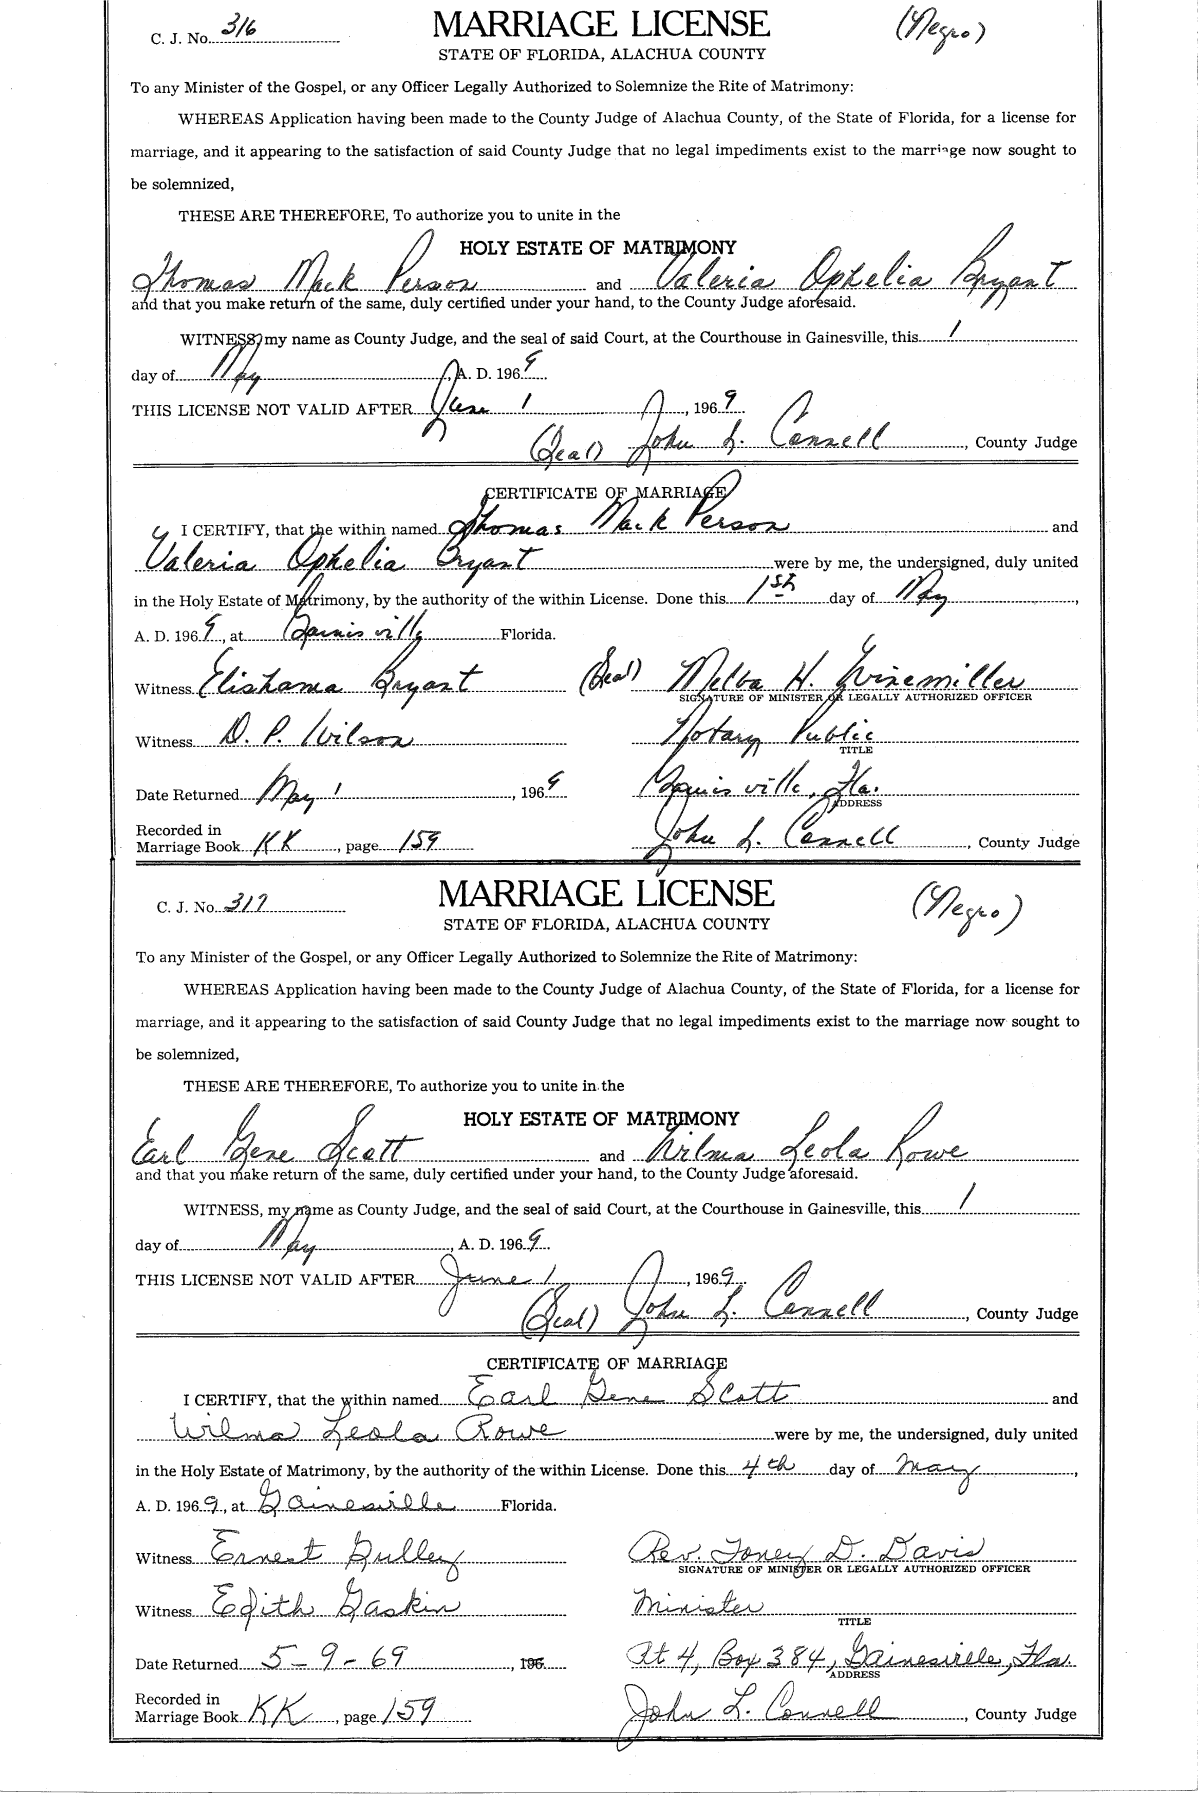 C. J. No. 316 MARRIAGE LICENSE (Negro)
STATE OF FLORIDA, ALACHUA COUNTY
To any Minister of the Gospel, or any Officer Legally Authorized to Solemnize the Rite of Matrimony:
WHEREAS Application having been made to the County Judge of Alachua County, of the State of Florida, for a license for
marriage, and it appearing to the satisfaction of said County Judge that no legal impediments exist to the marriage now sought to
be solemnized,
THESE ARE THEREFORE, To authorize you to unite in the
HOLY ESTATE OF MATRIMONY
Thomas Mack Person and Valeria Ophelia Bryant
and that you make return of the same, duly certified under your hand, to the County Judge aforesaid.
WITNESS, my name as County Judge, and the seal of said Court, at the Courthouse in Gainesville, this 1
day of May, A. D. 1969.
THIS LICENSE NOT VALID AFTER June 1, 1969.
(Seal) John L. Connell, County Judge
CERTIFICATE OF MARRIAGE
I CERTIFY, that the within named Thomas Mack Person and
Valeria Ophelia Bryant were by me, the undersigned, duly united
in the Holy Estate of Matrimony, by the authority of the within License. Done this 1st day of May,
A. D. 1969, at Gainisville Florida.
Witness Elishama Bryant (Seal) Melba H. Winemiller
SIGNATURE OF MINISTER OR LEGALLY AUTHORIZED OFFICER
Witness D. P. Wilson Notary Public
TITLE
Date Returned May 1, 1969 Gainisville, Fla.
ADDRESS
Recorded in
Marriage Book KK, page 159 John L. Connell, County Judge
C. J. No. 317 MARRIAGE LICENSE (Negro)
STATE OF FLORIDA, ALACHUA COUNTY
To any Minister of the Gospel, or any Officer Legally Authorized to Solemnize the Rite of Matrimony:
WHEREAS Application having been made to the County Judge of Alachua County, of the State of Florida, for a license for
marriage, and it appearing to the satisfaction of said County Judge that no legal impediments exist to the marriage now sought to
be solemnized,
THESE ARE THEREFORE, To authorize you to unite in the
HOLY ESTATE OF MATRIMONY
Earl Gene Scott and Wilma Leola Rowe
and that you make return of the same, duly certified under your hand, to the County Judge aforesaid.
WITNESS, my name as County Judge, and the seal of said Court, at the Courthouse in Gainesville, this 1
day of May, A. D. 1969.
THIS LICENSE NOT VALID AFTER June 1, 1969.
(Seal) John L. Connell, County Judge
CERTIFICATE OF MARRIAGE
I CERTIFY, that the within named Earl Gene Scott and
Wilma Leola Rowe were by me, the undersigned, duly united
in the Holy Estate of Matrimony, by the authority of the within License. Done this 4th day of May,
A. D. 1969, at Gainesville Florida.
Witness Ernest Gulley Rev. Toney D. Davis
SIGNATURE OF MINISTER OR LEGALLY AUTHORIZED OFFICER
Witness Edith Gaskin Minister
TITLE
Date Returned 5-9-69, 196 Rt 4, Box 384, Gainesville, Fla.
ADDRESS
Recorded in
Marriage Book KK, page 159 John L. Connell, County Judge